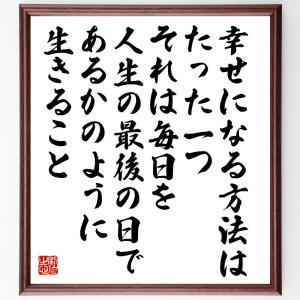 幸せになる方法は
たった一つ
それは毎日を
人生の最後の日で
あるかのように
生きること